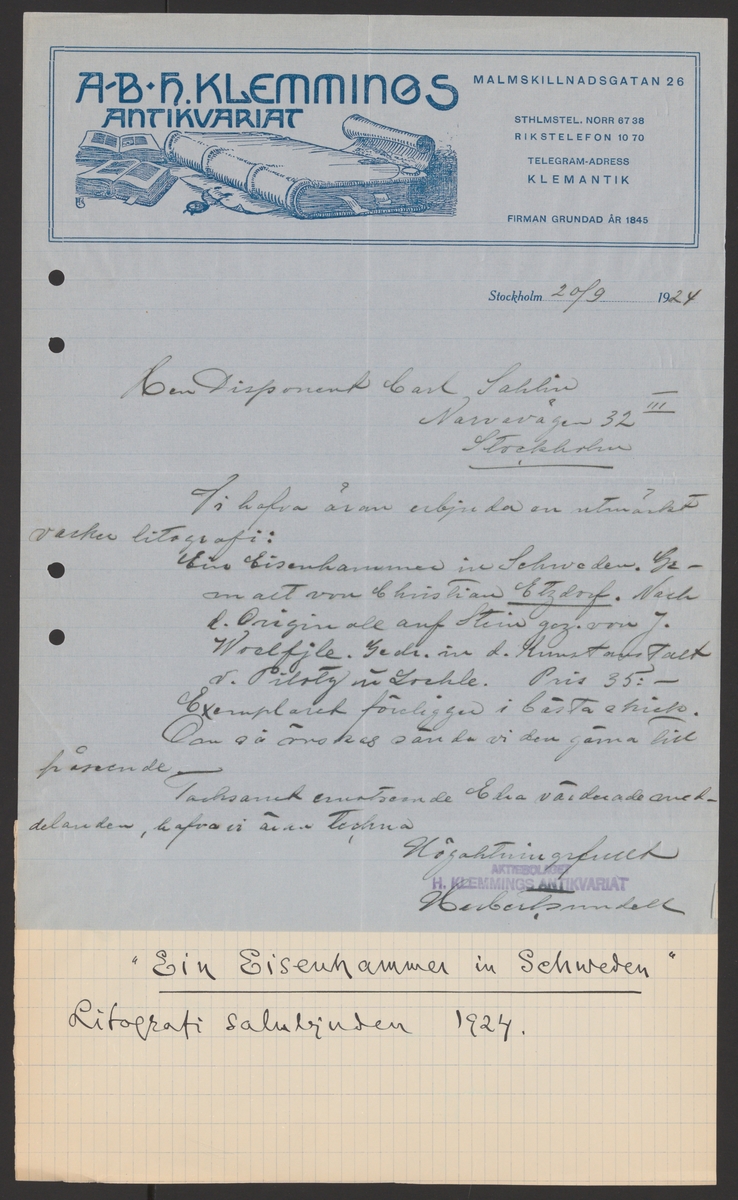 A-B·H. KLEMMINGS
ANTIKVARIAT
MALMSKILLNADSGATAN 26
STHLMSTEL. NORR 67 38
RIKSTELEFON 10 70
TELEGRAM-ADRESS
KLEMANTIK
FIRMAN GRUNDAD ÅR 1845
Stockholm 20/9 1924
Herr Disponent Carl Sahlin
Narvavägen 32 III
Stockholm
Vi hafva äran erbjuda en utmärkt
vacker litografi:
Ein Eisenhammer in Schweden. Ge-
malt von Christian Etzdorf. Nach
d. Originale auf Stein gez. von J.
Woelffle. Gedr. in d. Kunstanstalt
v. Piloty u Loehle. Pris 35:-
Exemplaret föreligger i bästa skick.
Om så önskas sända vi den gärna till
påseende.
Tacksamt emotseende Edra värderade med-
delanden, hafva vi äran teckna
Högaktningsfullt
AKTIEBOLAGET
H. KLEMMINGS ANTIKVARIAT
"Ein Eisenhammer in Schweden"
Litografi salubjuden 1924.